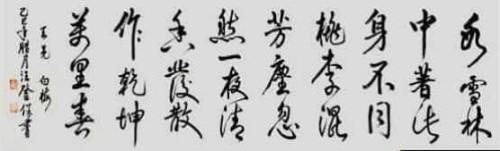 冰雪林
中著此
身不同
桃李混
芳塵忽
然一夜清
香發散
作乾坤
萬里春
王冕 白梅
年腊月 書